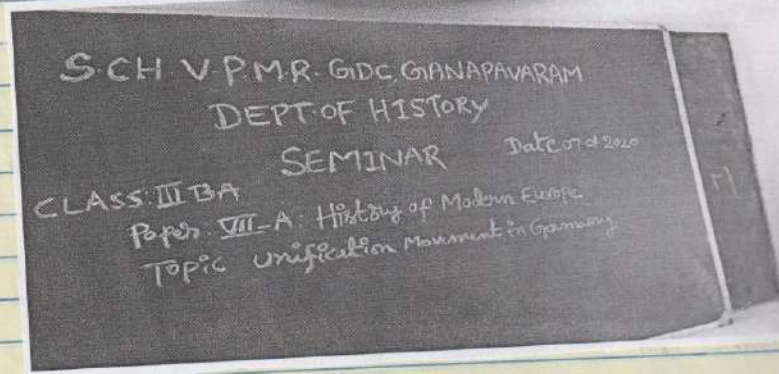 S.CH.V.P.M.R. GDC, GANAPAVARAM
DEPT OF HISTORY
SEMINAR Date 07 01 2020
CLASS: III BA
Paper: VII-A: History of Modern Europe
Topic Unification Movement in Germany